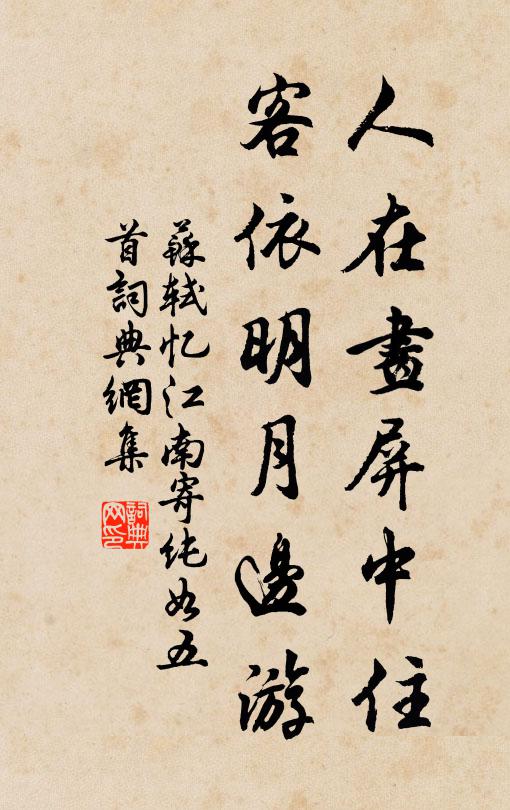 人在畫屏中住
客依明月邊游
蘇軾忆江南寄纯如五
首詞典網集
詞典
网印